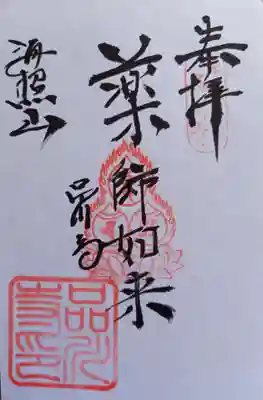 奉拝
薬師如来
品川寺
海照山
品川
寺印